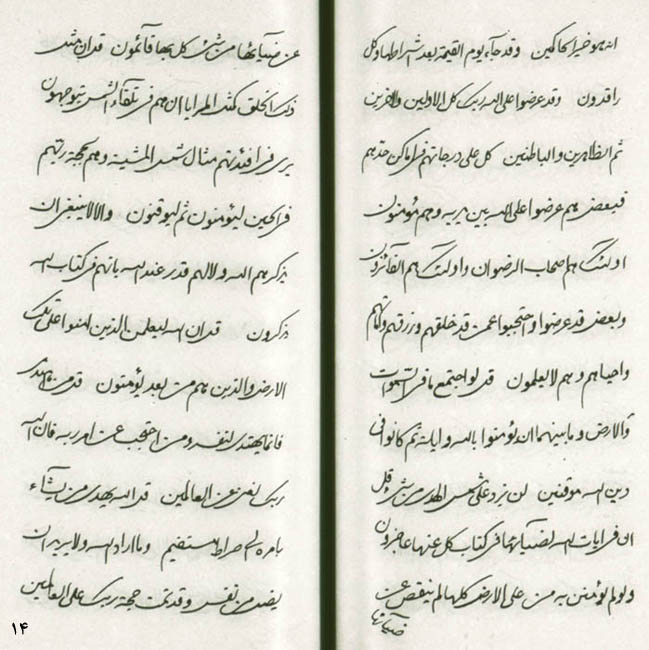 انه هو خير الحاكمين وقد جاء يوم القيمة بعد اشراطها وكل
راقدون وقد عرضوا على الله ربك كل الاولين والاخرين
ثم الظاهرين والباطنين كل على درجاتهم في اماكن حدهم
فبعض هم عرضوا على الله بين يديه وهم مؤمنون
اولئك هم اصحاب الرضوان واولئك هم الفائزون
وبعض قد عرضوا واحتجبوا عمن قد خلقهم ورزقهم واماتهم
واحياهم وهم لا يعلمون قل لو اجتمع ما في السموات
والارض وما بينهما ان يؤمنوا بالله واياته ثم كانوا في
دين الله موقنين لن يزد على شمس الهدى من شيء قل
ان في ايات الله لضياء ما في كتاب كل عنها عاجزون
ولو لم يؤمنن به من على الارض كلها لم ينقص عن
ضيائها
عن ضيائها من شيء كل بها قائمون قل ان مثل
ذلك الخلق كمثل المرايا ان هم في تلقاء الشمس يتوجهون
يرى في افئدتهم مثال شمس المشية وهم بحجة ربهم
في الحين ليؤمنون ثم ليوقنون والا لا ينبغي ان
يذكرهم الله ولا لهم قدر عند الله بانهم في كتاب الله
يذكرون قل ان الله ليعلمن بالذين امنوا على تلك
الارض والذين هم من بعد يؤمنون قل من يهتدى
فانما يهتدى لنفسه ومن احتجب عن امر ربه فان الله
ربك لغني عن العالمين قل الله يهدى من يشاء
بامره الى صراط مستقيم وما اراد الله ولا يريد ان
يضل من نفس وقد تمت حجة ربك على العالمين
۱۴